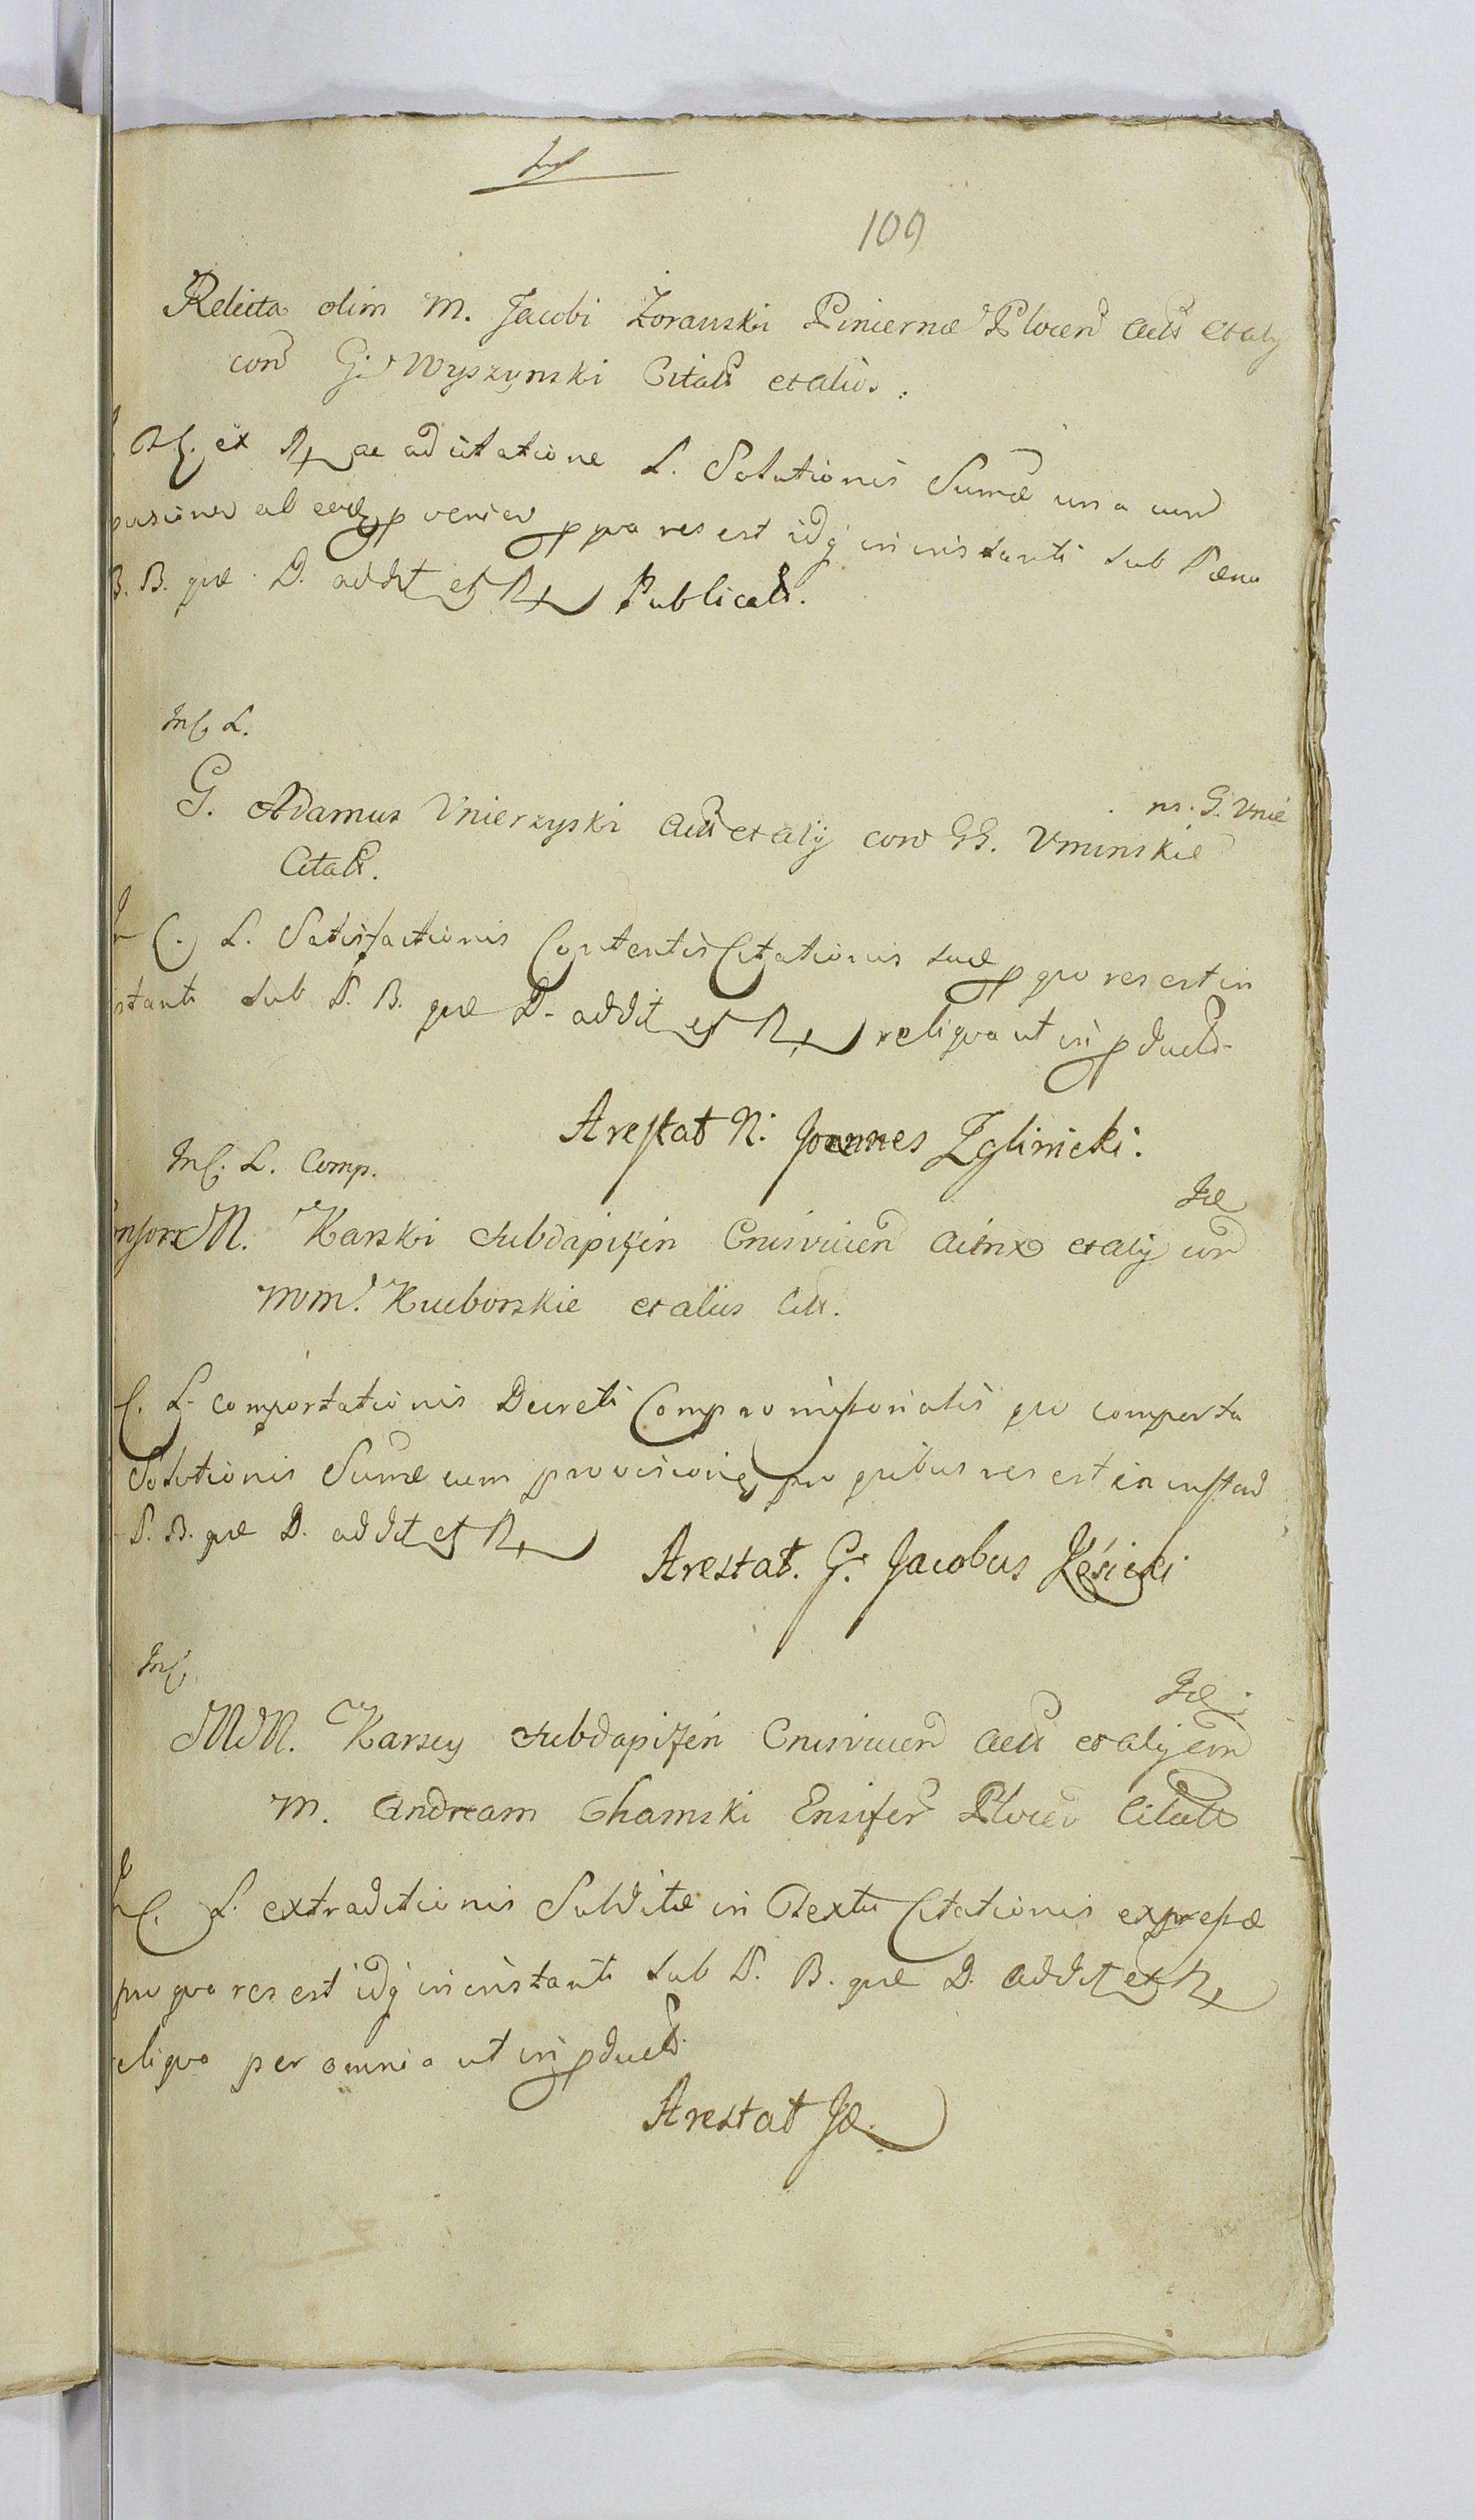 109
Relicta olim M. Jacobi Zorawski Pincernæ Plocen Actr et alij
con G. Wyszynski Citatt et alios.
M. ex Rx ac adcitatione L. Solutionis Sumæ una cum
ab eadq p venien p qua res est idq in instanti sub Pæna
B. quæ D. addit et Rx Publicatt.
Inl. L.
G. Adamus Unierzyski Actt et alij con GG. Uminskie
ns. G. Unie
Citatt.
C. L. Satisfactionis Contentis Citationis suæ p quo res est in
stanti sub P. B. quæ D. addit et Rx reliqua ut in p duett
Arestat N. Joannes Zglinicki.
Inl. L. Comp.
Id
onsors M. Karski Subdapiferi Cruswicien Actrix et alij con
MM. Kuborskie et aliis Citt.
C. L. comportationis Decreti Compromissorialis quo comporta
Solutionis Sumæ cum provisione, pro quibus res est in instan
P. B. quæ D. addit et Rx
Arestat. G. Jacobus Késicki
Inl.
Id
MM. Karscy Subdapiferi Cruswicien Actt et alij con
M. Andream Chamski Ensifer Plocen Citatt
C. L. extraditionis Subditæ in Textu Citationis expressæ
pro qua res est idq in instanti sub P. B. quæ D. addit et Rx
eliqua per omnia ut in p duett
Arestat Id.